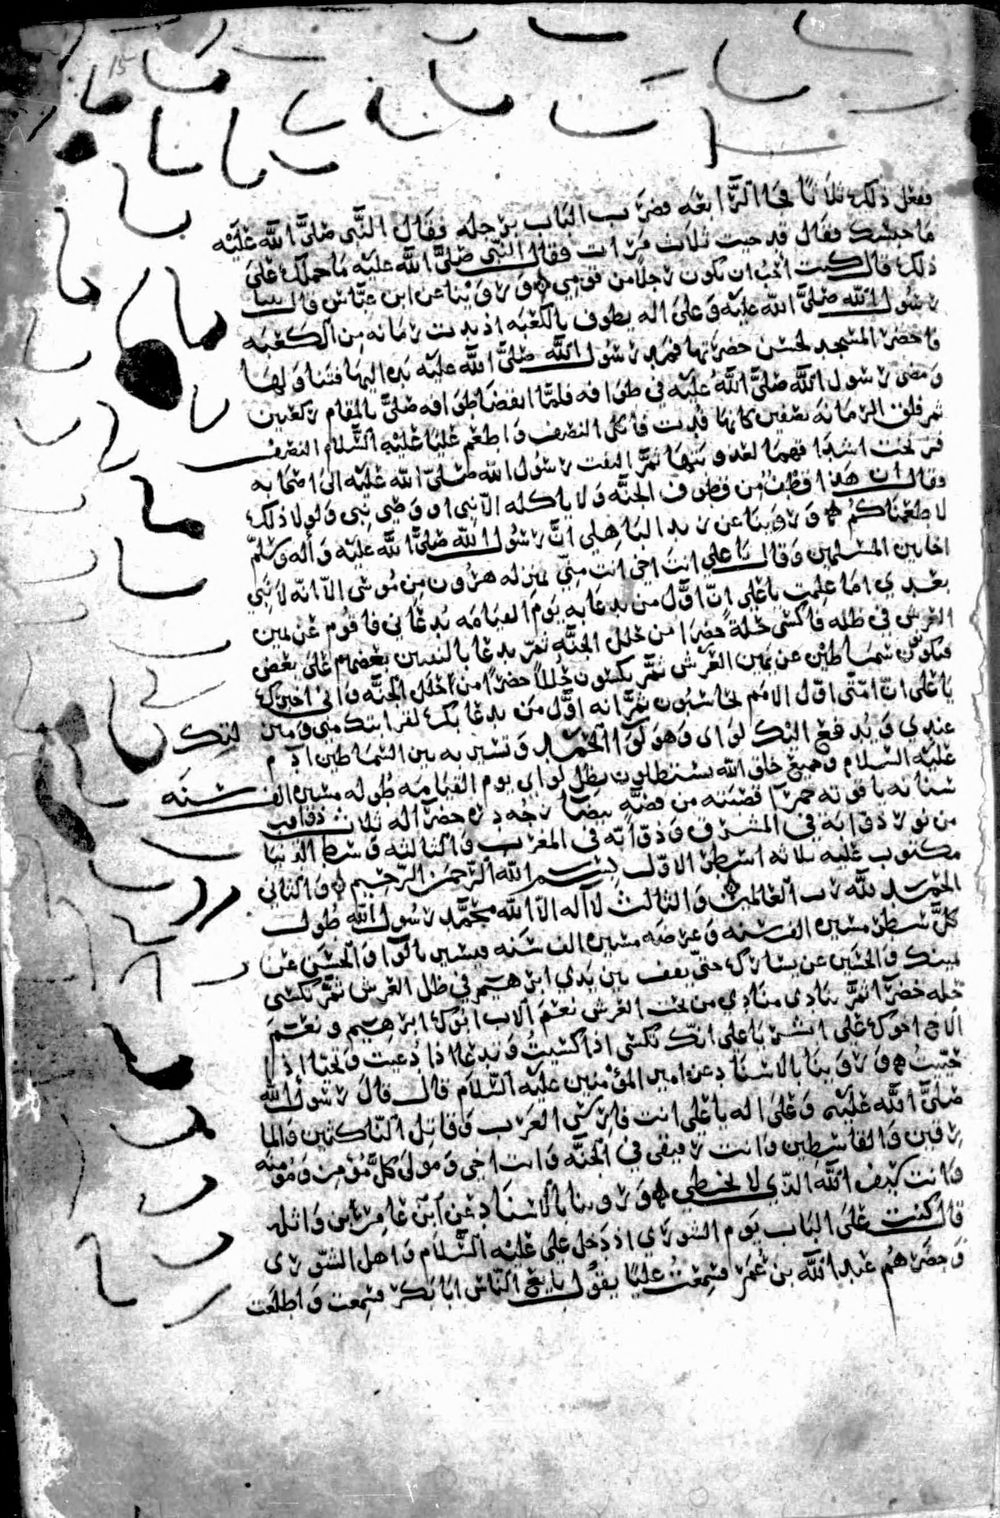 ففعل ذلك ثلاثا فجا الرابعه فضرب الباب برجله فقال النبي صلى الله عليه
ما حبسك فقال قد جيت ثلاث مرات فقال النبي صلى الله عليه ما حملك على
ذلك قال كنت احب ان يكون رجلا من قومي وروينا عن ابن عباس قال بينا
رسول الله صلى الله عليه وعلى اله يطوف بالكعبه اذ بدت رمانه من الكعبه
واخضر المسجد لحسن خضرتها فمد رسول الله صلى الله عليه يده اليها فتناولها
ومضى رسول الله صلى الله عليه في طوافه فلما انقضا طوافه صلى بالمقام ركعتين
ثم فلق الرمانه نصفين كانها قدت فاكل النصف واطعم عليا عليه السلام النصف
فرنحت اشداقهما لعذوبتها ثم التفت رسول الله صلى الله عليه الى اصحابه
وقال ان هذا قطف من قطوف الجنه ولا ياكله الا نبي او وصي نبي ولولا ذلك
لاطعمناكم وروينا عن زيد الباهلي ان رسول الله صلى الله عليه واله وسلم
اخا بين المسلمين وقال يا علي انت اخي انت مني بمنزله هرون من موسى الا انه لا نبي
بعدي اما علمت يا علي ان اول من يدعا به يوم القيامه يدعا بي فاقوم عن يمين
العرش في ظله فاكسى حلة خضرا من حلل الجنه ثم يدعا بالنبيين بعضهم على بعض
فيكونون سماطين عن يمين العرش ثم يكسون حللا خضرا من حلل الجنه واني اخبرك
يا علي ان امتي اول الامم يحاسبون ثم انه اول من يدعا بك لقرابتك مني ومنزلتك
عندي ويدفع اليك لواي وهو لوا الحمد وتسير به بين السماطين ادم
عليه السلام وجميع خلق الله يستظلون بظل لواي يوم القيامه طوله مسيره الف سنه
سنانه ياقوته حمرا قضبته من فضه بيضا زجه دره خضرا له ثلاث ذوايب
من نور ذوابه في المشرق وذوابه في المغرب والثالثه وسط الدنيا
مكتوب عليه ثلاثه اسطر الاول بسم الله الرحمن الرحيم والثاني
الحمد لله رب العالمين والثالث لا اله الا الله محمد رسول الله طول
كل سطر مسيره الف سنه وعرضه مسيره الف سنه فتسير باللوا والحسن عن
يمينك والحسين عن يسارك حتى تقف بين يدي ابرهيم في ظل العرش ثم تكسى
حله خضرا ثم ينادي منادي من تحت العرش نعم الاب ابوك ابرهيم ونعم
الاخ اخوك علي ابشر يا علي انك تكسى اذا كسيت وتدعا اذا دعيت وتحيا اذا
حييت وروينا بالاسناد عن امير المؤمنين عليه السلام قال قال رسول الله
صلى الله عليه وعلى اله يا علي انت فارس العرب وقاتل الناكثين والما
رقين والقاسطين وانت رفيقي في الجنه وانت اخي ومولى كل مؤمن ومؤمنه
وانت سيف الله الذي لا يخطي وروينا بالاسناد عن ابن عامر بن واثله
قال كنت على الباب يوم الشورى اذ دخل علي عليه السلام واهل الشورى
وحضرهم عبد الله بن عمر فسمعت عليا يقول بايع الناس ابا بكر فسمعت واطعت